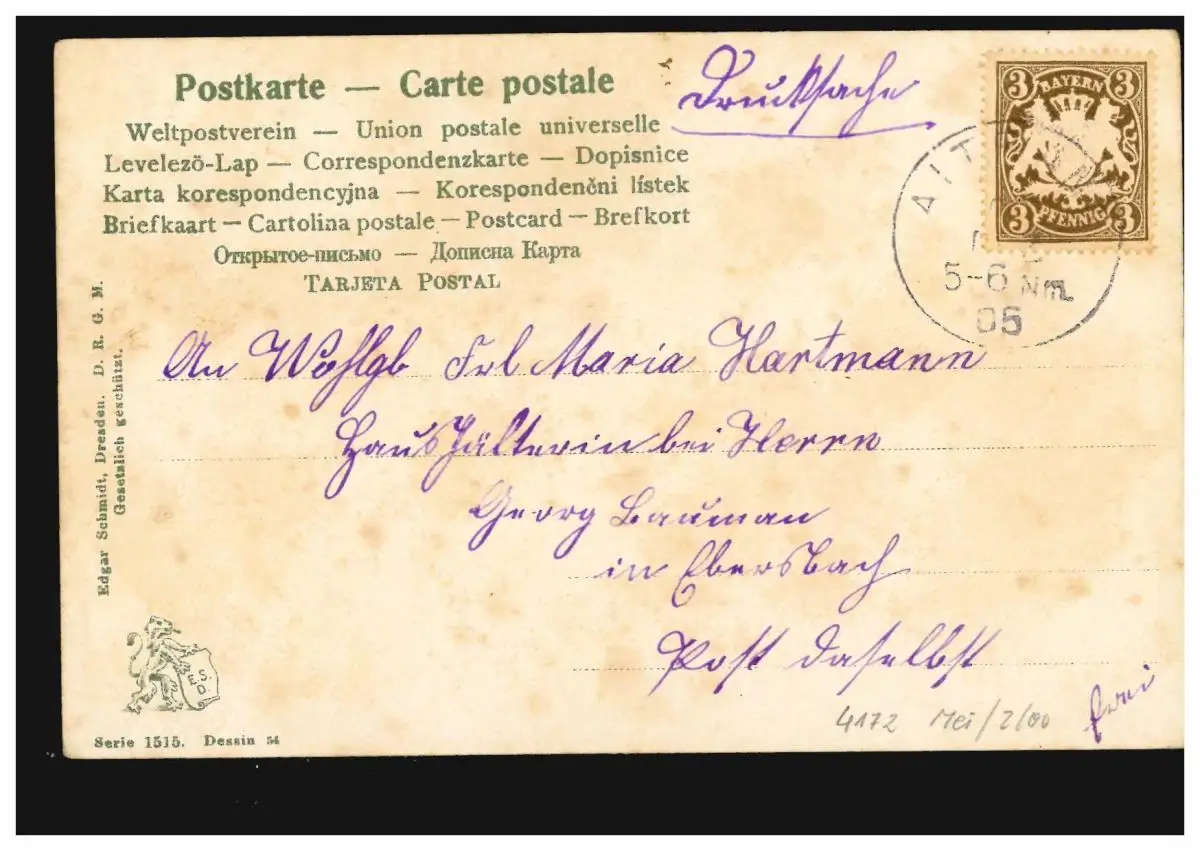 Postkarte — Carte postale
Drucksache
Weltpostverein — Union postale universelle
Levelező-Lap — Correspondenzkarte — Dopisnice
Karta korespondencyjna — Korespondenčni lístek
Briefkaart — Cartolina postale — Postcard — Brefkort
Открытое-письмо — Дописна Карта
TARJETA POSTAL
3 BAYERN 3
3 PFENNIG 3
AIT
5-6 Nm.
05
An Wohlgb Frl Maria Hartmann
Haushälterin bei Herrn
Georg Bauman
in Ebersbach
Post daselbst
frei
4172 Mei/2/00
Edgar Schmidt, Dresden. D. R. G. M.
Gesetzlich geschützt.
E.S.
D.
Serie 1515. Dessin 54